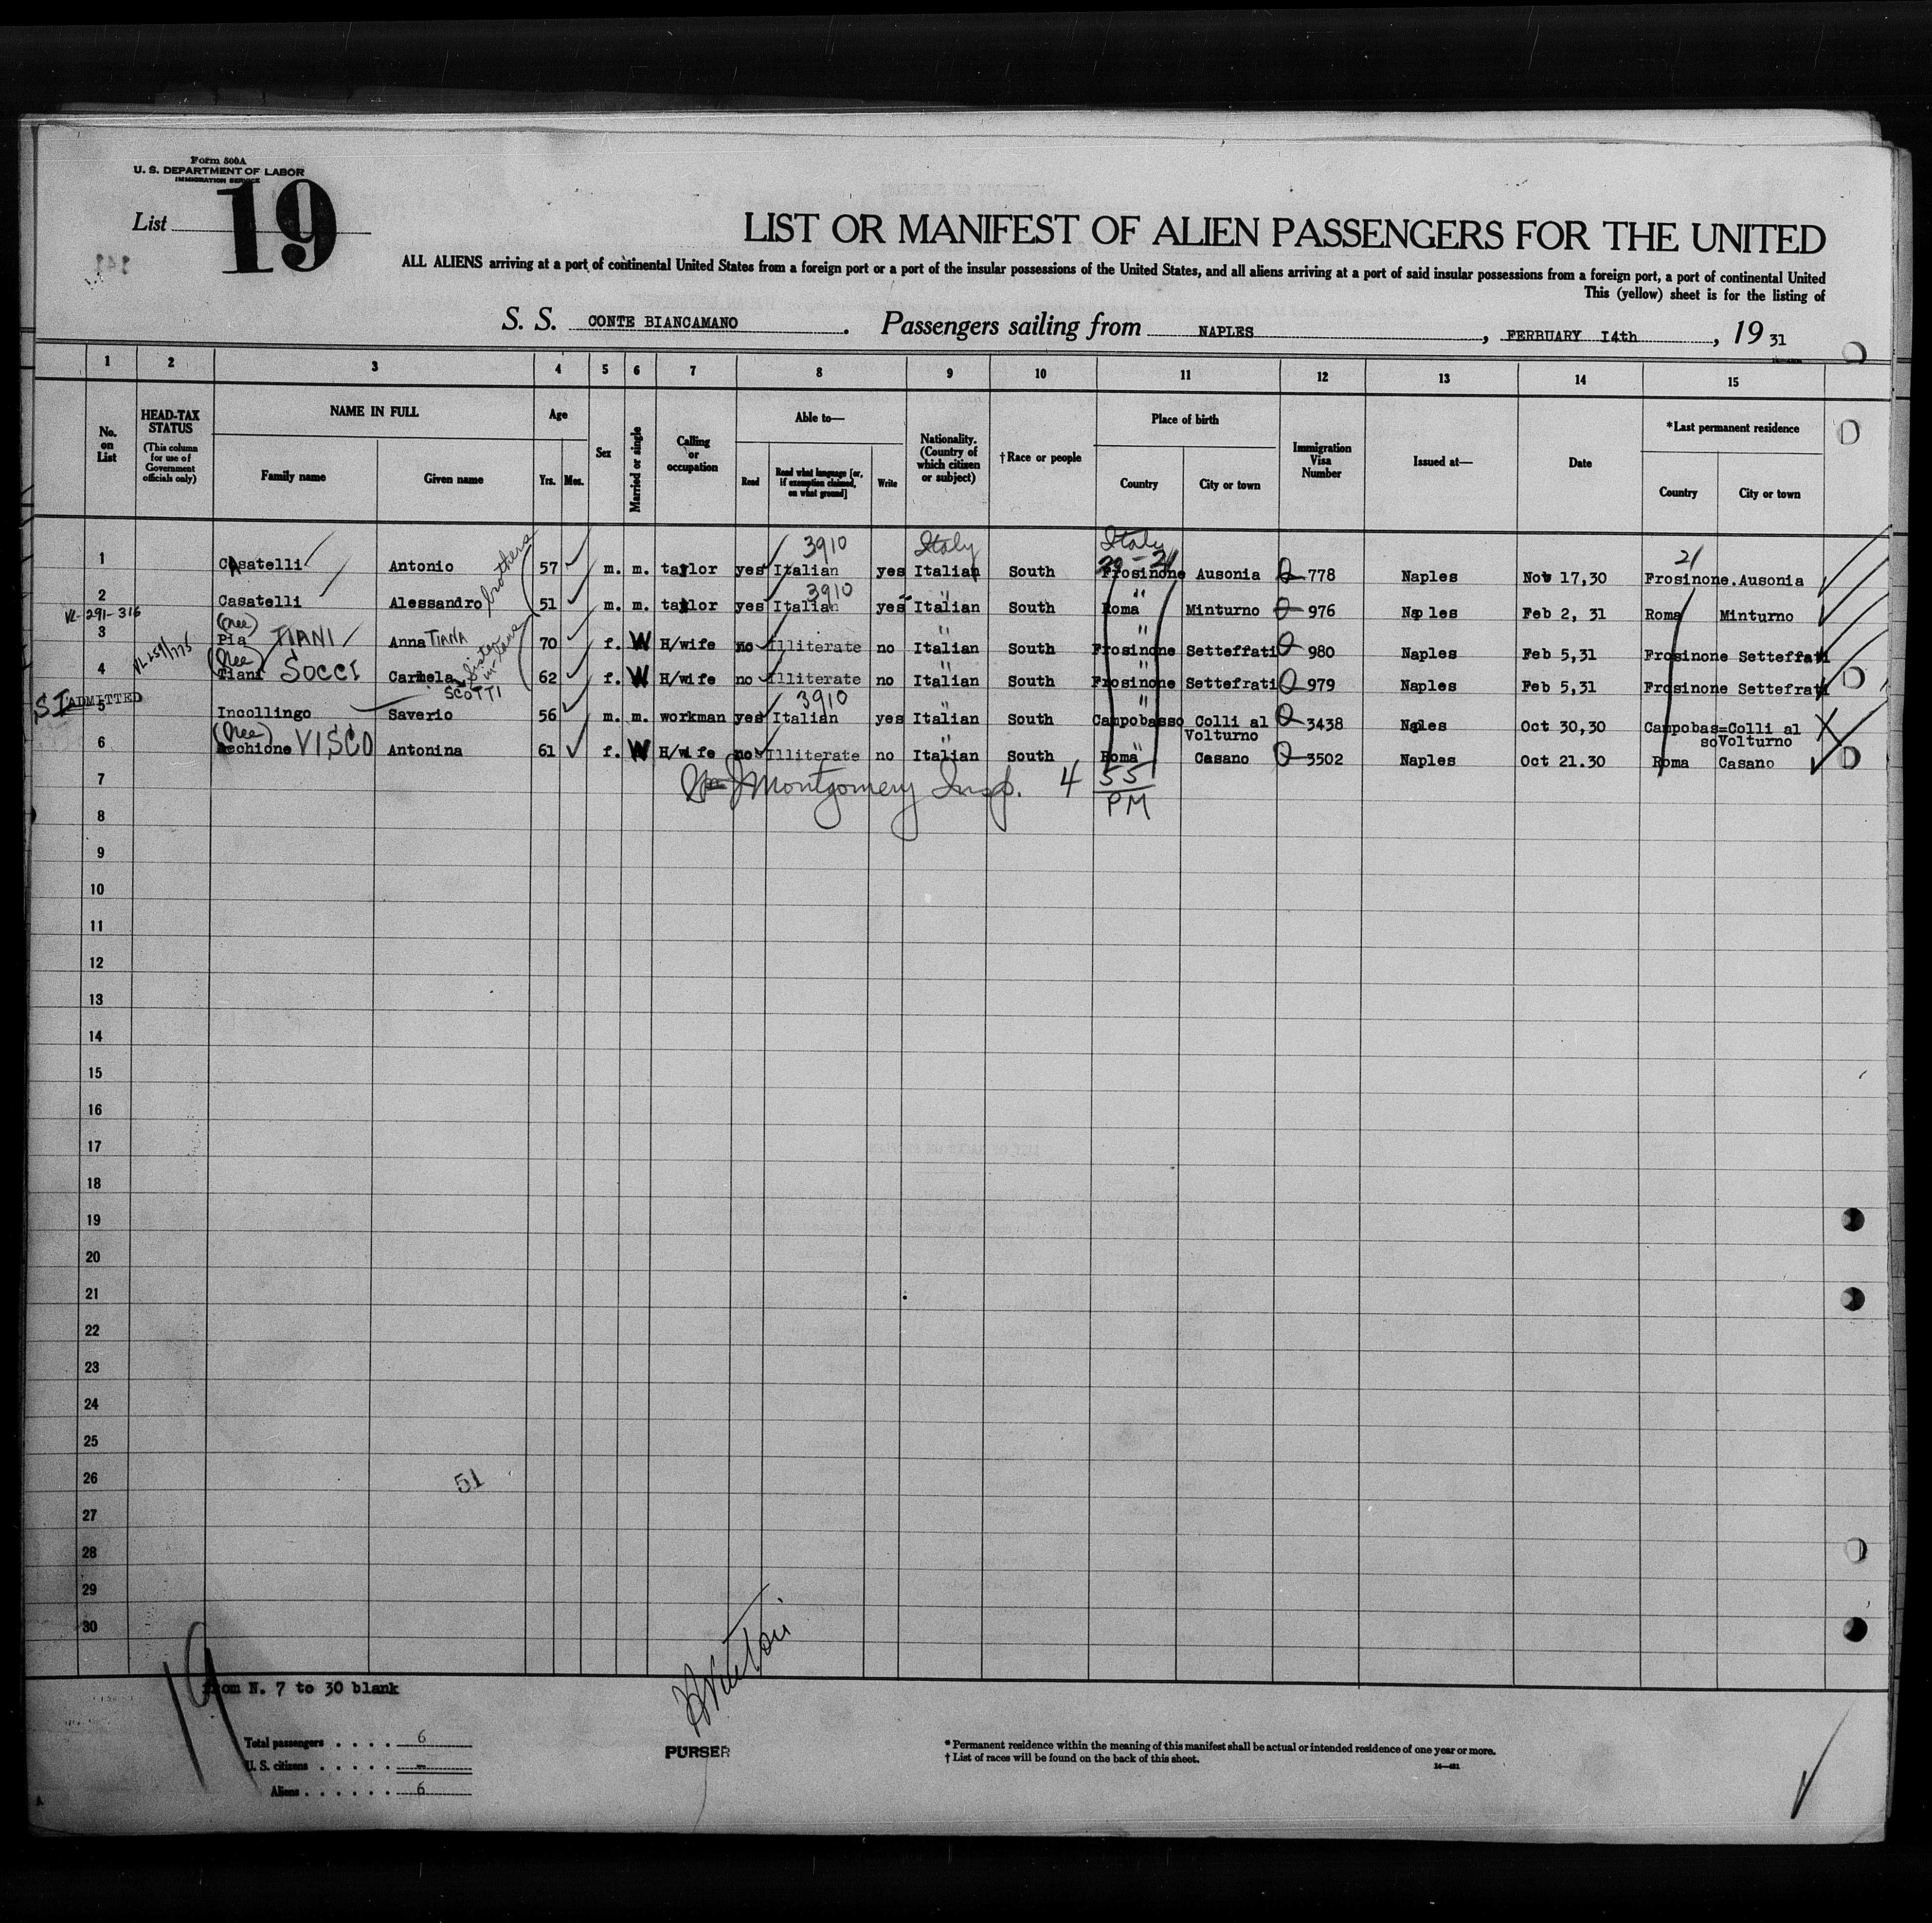 Form 500A
U. S. DEPARTMENT OF LABOR
IMMIGRATION SERVICE
List 19
LIST OR MANIFEST OF ALIEN PASSENGERS FOR THE UNITED
ALL ALIENS arriving at a port of continental United States from a foreign port or a port of the insular possessions of the United States, and all aliens arriving at a port of said insular possessions from a foreign port, a port of continental United
This (yellow) sheet is for the listing of
S. S. CONTE BIANCAMANO. Passengers sailing from NAPLES, FERBUARY I4th, 19 31
1 2 3 4 5 6 7 8 9 10 11 12 13 14 15
No. on List
HEAD-TAX STATUS
(This column for use of Government officials only)
NAME IN FULL
Family name Given name
Age
Yrs. Mos.
Sex
Married or single
Calling or occupation
Able to—
Read
Read what language [or, if exemption claimed, on what ground]
Write
Nationality. (Country of which citizen or subject)
†Race or people
Place of birth
Country City or town
Immigration Visa Number
Issued at—
Date
*Last permanent residence
Country City or town
brothers 3910 Italy Italy 21
1 Casatelli Antonio 57 m. m. taylor yes Italian yes Italian South Frosinone Ausonia Q 778 Naples Nov 17,30 Frosinone.Ausonia
3910
2 Casatelli Alessandro 51 m. m. taylor yes Italian yes Italian " South Roma " Minturno Q 976 Naples Feb 2, 31 Roma Minturno
VL-291-316
3 (nee) Pia TIANI Anna TIANA 70 f. W H/wife no Illiterate no Italian " South Frosinone " Setteffati Q 980 Naples Feb 5,31 Frosinone Setteffati
Sister in-laws
4 (Nee) Tiani SOCCI Carmela SCOTTI 62 f. W H/wife no Illiterate no Italian " South Frosinone " Settefrati Q 979 Naples Feb 5,31 Frosinone Settefrati
SI ADMITTED 3910
5 Incollingo Saverio 56 m. m. workman yes Italian yes Italian " South Campobasso " Colli al Volturno Q 3438 Naples Oct 30,30 Campobas=so Colli al Volturno
6 (Nee) VISCO Antonina 61 f. W H/wife no Illiterate no Italian " South Roma " Casano Q 3502 Naples Oct 21.30 Roma Casano
7 J Montgomery Insp. 4 55 PM
8
9
10
11
12
13
14
15
16
17
18
19
20
21
22
23
24
25
26 51
27
28
29
30
19
from N. 7 to 30 blank
Total passengers . . . . 6
U. S. citizens . . . . . -
Aliens . . . . . . 6
PURSER
* Permanent residence within the meaning of this manifest shall be actual or intended residence of one year or more.
† List of races will be found on the back of this sheet.